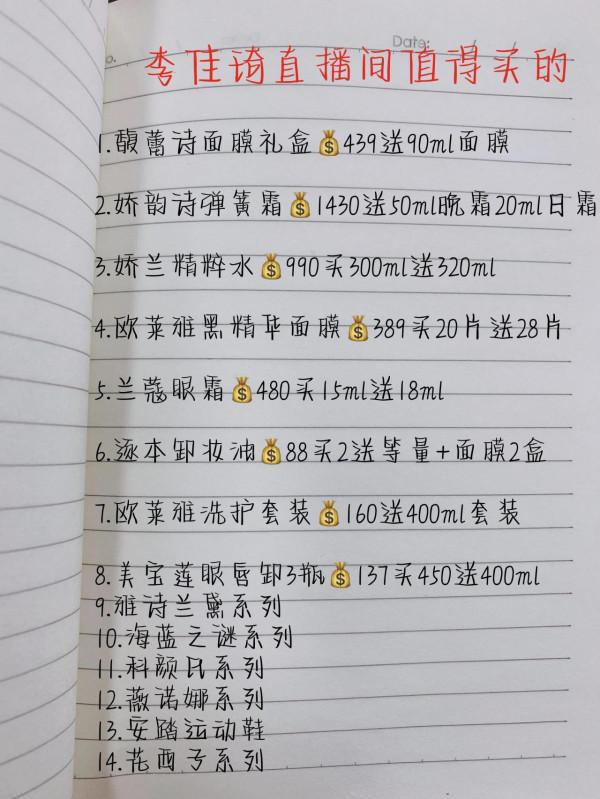 Date:
o.
李佳琦直播间值得买的
1.馥蕾诗面膜礼盒💰439送90ml面膜
2.娇韵诗弹簧霜💰1430送50ml晚霜20ml日霜
3.娇兰精粹水💰990买300ml送320ml
4.欧莱雅黑精华面膜💰389买20片送28片
5.兰蔻眼霜💰480买15ml送18ml
6.逐本卸妆油💰88买2送等量+面膜2盒
7.欧莱雅洗护套装💰160送400ml套装
8.美宝莲眼唇卸3瓶💰137买450送400ml
9.雅诗兰黛系列
10.海蓝之谜系列
11.科颜氏系列
12.薇诺娜系列
13.安踏运动鞋
14.花西子系列